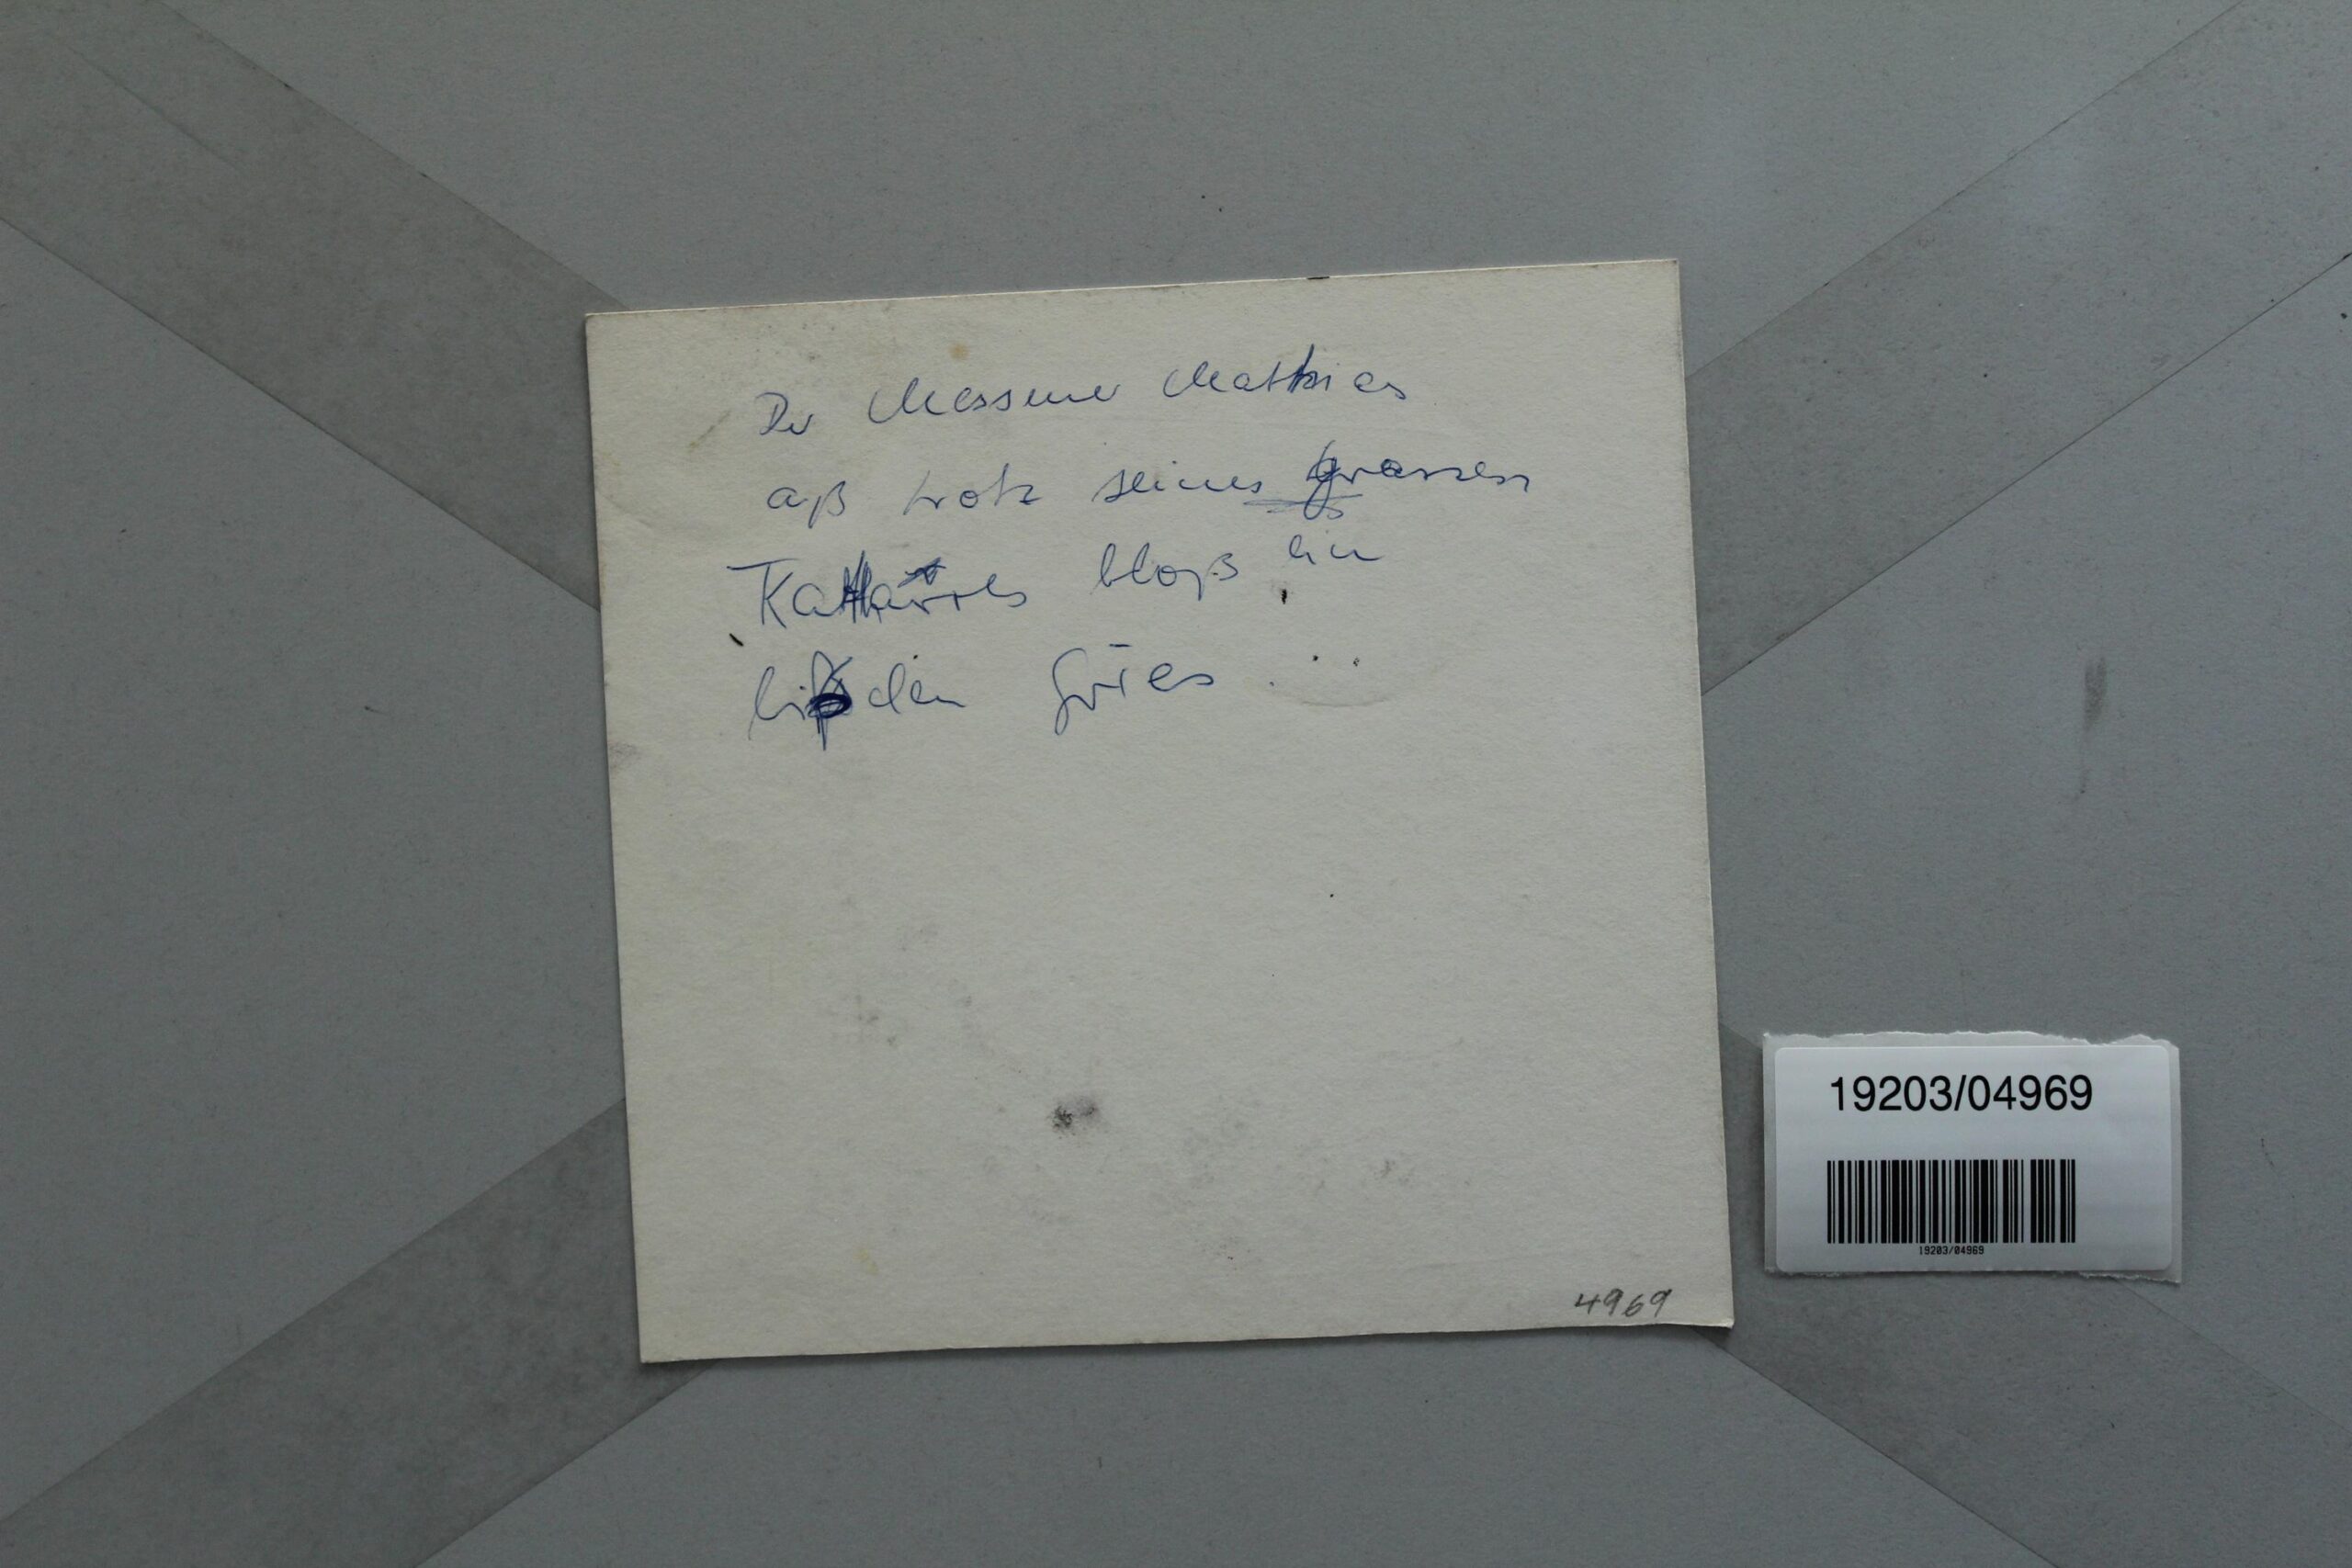 Der Messner Mathias
aß trotz seines grassen
Katharres bloß ein
bißchen Gries.
4969
19203/04969
19203/04969